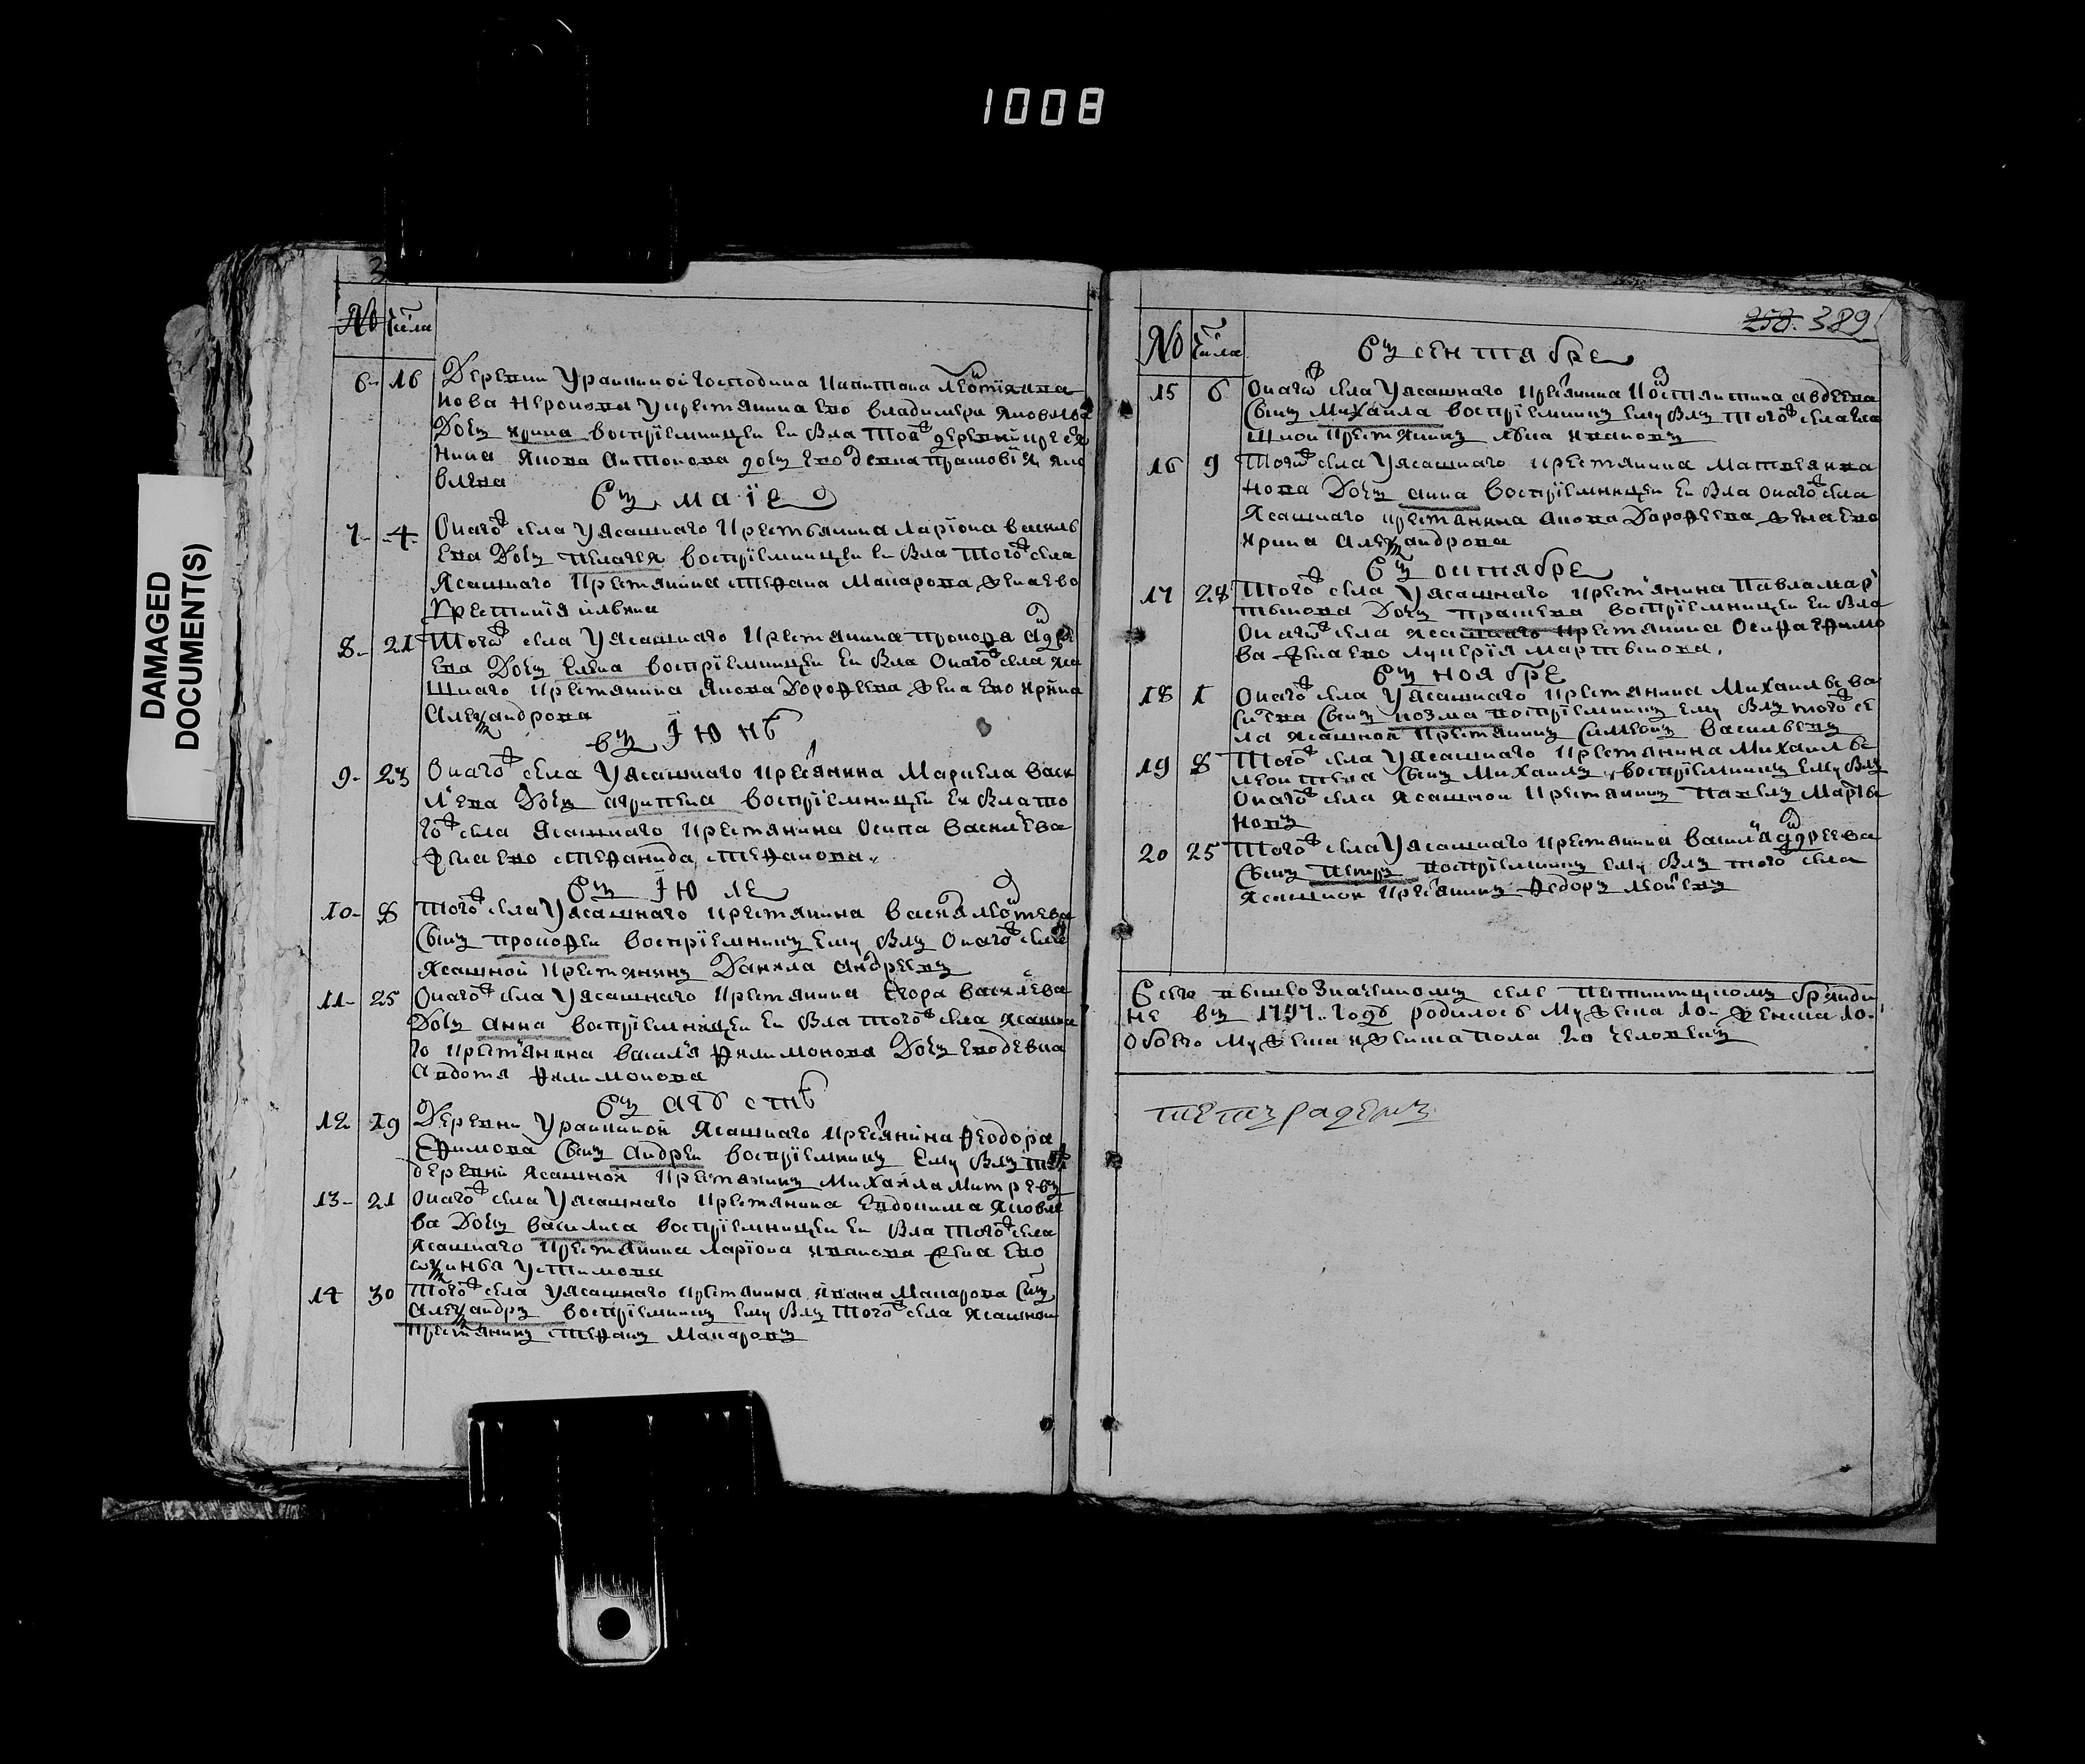 1008
DAMAGED
DOCUMENT(S)
3
№ числа
6 16 Деревни Украинной господина капитана
нова Неронова у крестьянина ево Владимера Яковлева
дочь Ирина восприемницей ей была тоя ж деревни кресья
нина Якова Антонова дочь ево девка Прасковія Яко
влева
въ маіе
7 4 Онагож села у ясашнаго крестьянина Ларіона Василь
ева дочь Пелагея восприемницей ей была тогож села
ясашнаго крестянина Стефана Макарова жена ево
Крестиния
8 21 Тогож села у ясашнаго крестянина Прокора Адре
ева дочь Елена восприемницей ей была онагож села яса
шнаго крестянина Якова Дорофеева жена ево Ирина
Александрова
въ Іюнь
9 23 Онагож села у ясашнаго кресянина Маркела Васи
лева дочь Агрипена восприемницей ей была то
гож села ясашнаго крестянина Осипа Василева
жена ево Стефанида Стефанова
въ Іюле
10 8 Тогож села у ясашнаго крестянина
сынъ Прокофеи восприемникъ ему былъ онагож села
ясашной крестянинъ Данила Андреевъ
11 25 Онагож села у ясашнаго крестянина Егора Василева
дочь Анна восприемницей ей была тогож села ясашна
го крестянина Василя Филимонова дочь ево девка
Авдотя Филимонова
въ августь
12 19 Деревни Украинной ясашнаго кресянина Феодора
Ефимова сынъ Андреи восприемникъ ему былъ тояж
деревни ясашной крестянинъ Михаила Митревъ
13 21 Онагож села у ясашнаго крестянина Евдокима Яковле
ва дочь Василиса восприемницей ей была тогож села
ясашнаго крестянина Ларіона Иванова жена ево
Устимова
14 30 Тогож села у ясашнаго крестянина Ивана Макарова сынъ
Александръ восприемникъ ему былъ тогож села ясашной
крестянинъ Стефанъ Макаровъ
258. 389
№ числа
въ сентябре
15 6 Онагож села у ясашнаго кресянина Костянтина Авдеева
сынъ Михаила восприемникъ ему былъ тогож села яса
шной крестянинъ Ивановъ
16 9 Тогож села у ясашнаго крестянина Матвея Ива
нова дочь Анна восприемницей ей была онагож села
ясашнаго крестянина Якова Дорофеева жена ево
Ирина Александрова
въ октябре
17 28 Тогож села у ясашнаго крестянина Павла Мар
тынова дочь Прасева восприемницей ей была
онагож села ясашнаго крестянина Осипа Ефимо
ва жена ево Лукерія Мартынова.
въ ноябре
18 1 Онагож села у ясашнаго крестянина Михаилы Ва
силева сынъ Козма восприемникъ ему былъ тогож се
ла ясашной крестянинъ Симеонъ Васильевъ
19 8 Тогож села у ясашнаго крестянина Михаилы
Леонтева сынъ Михаилъ восприемникъ ему былъ
онагож села ясашной крестянинъ Павелъ Марты
новъ
20 25 Тогож села у ясашнаго крестянина Василя Адреева
сынъ Петръ восприемникъ ему былъ тогож села
ясашной кресянинъ Федоръ
Всего в вышеозначенному селе Пятницкому Бранди
не въ 1797 годе родилось мужеска 10 женска 10
обоего мужеска и женска пола 20 человекъ